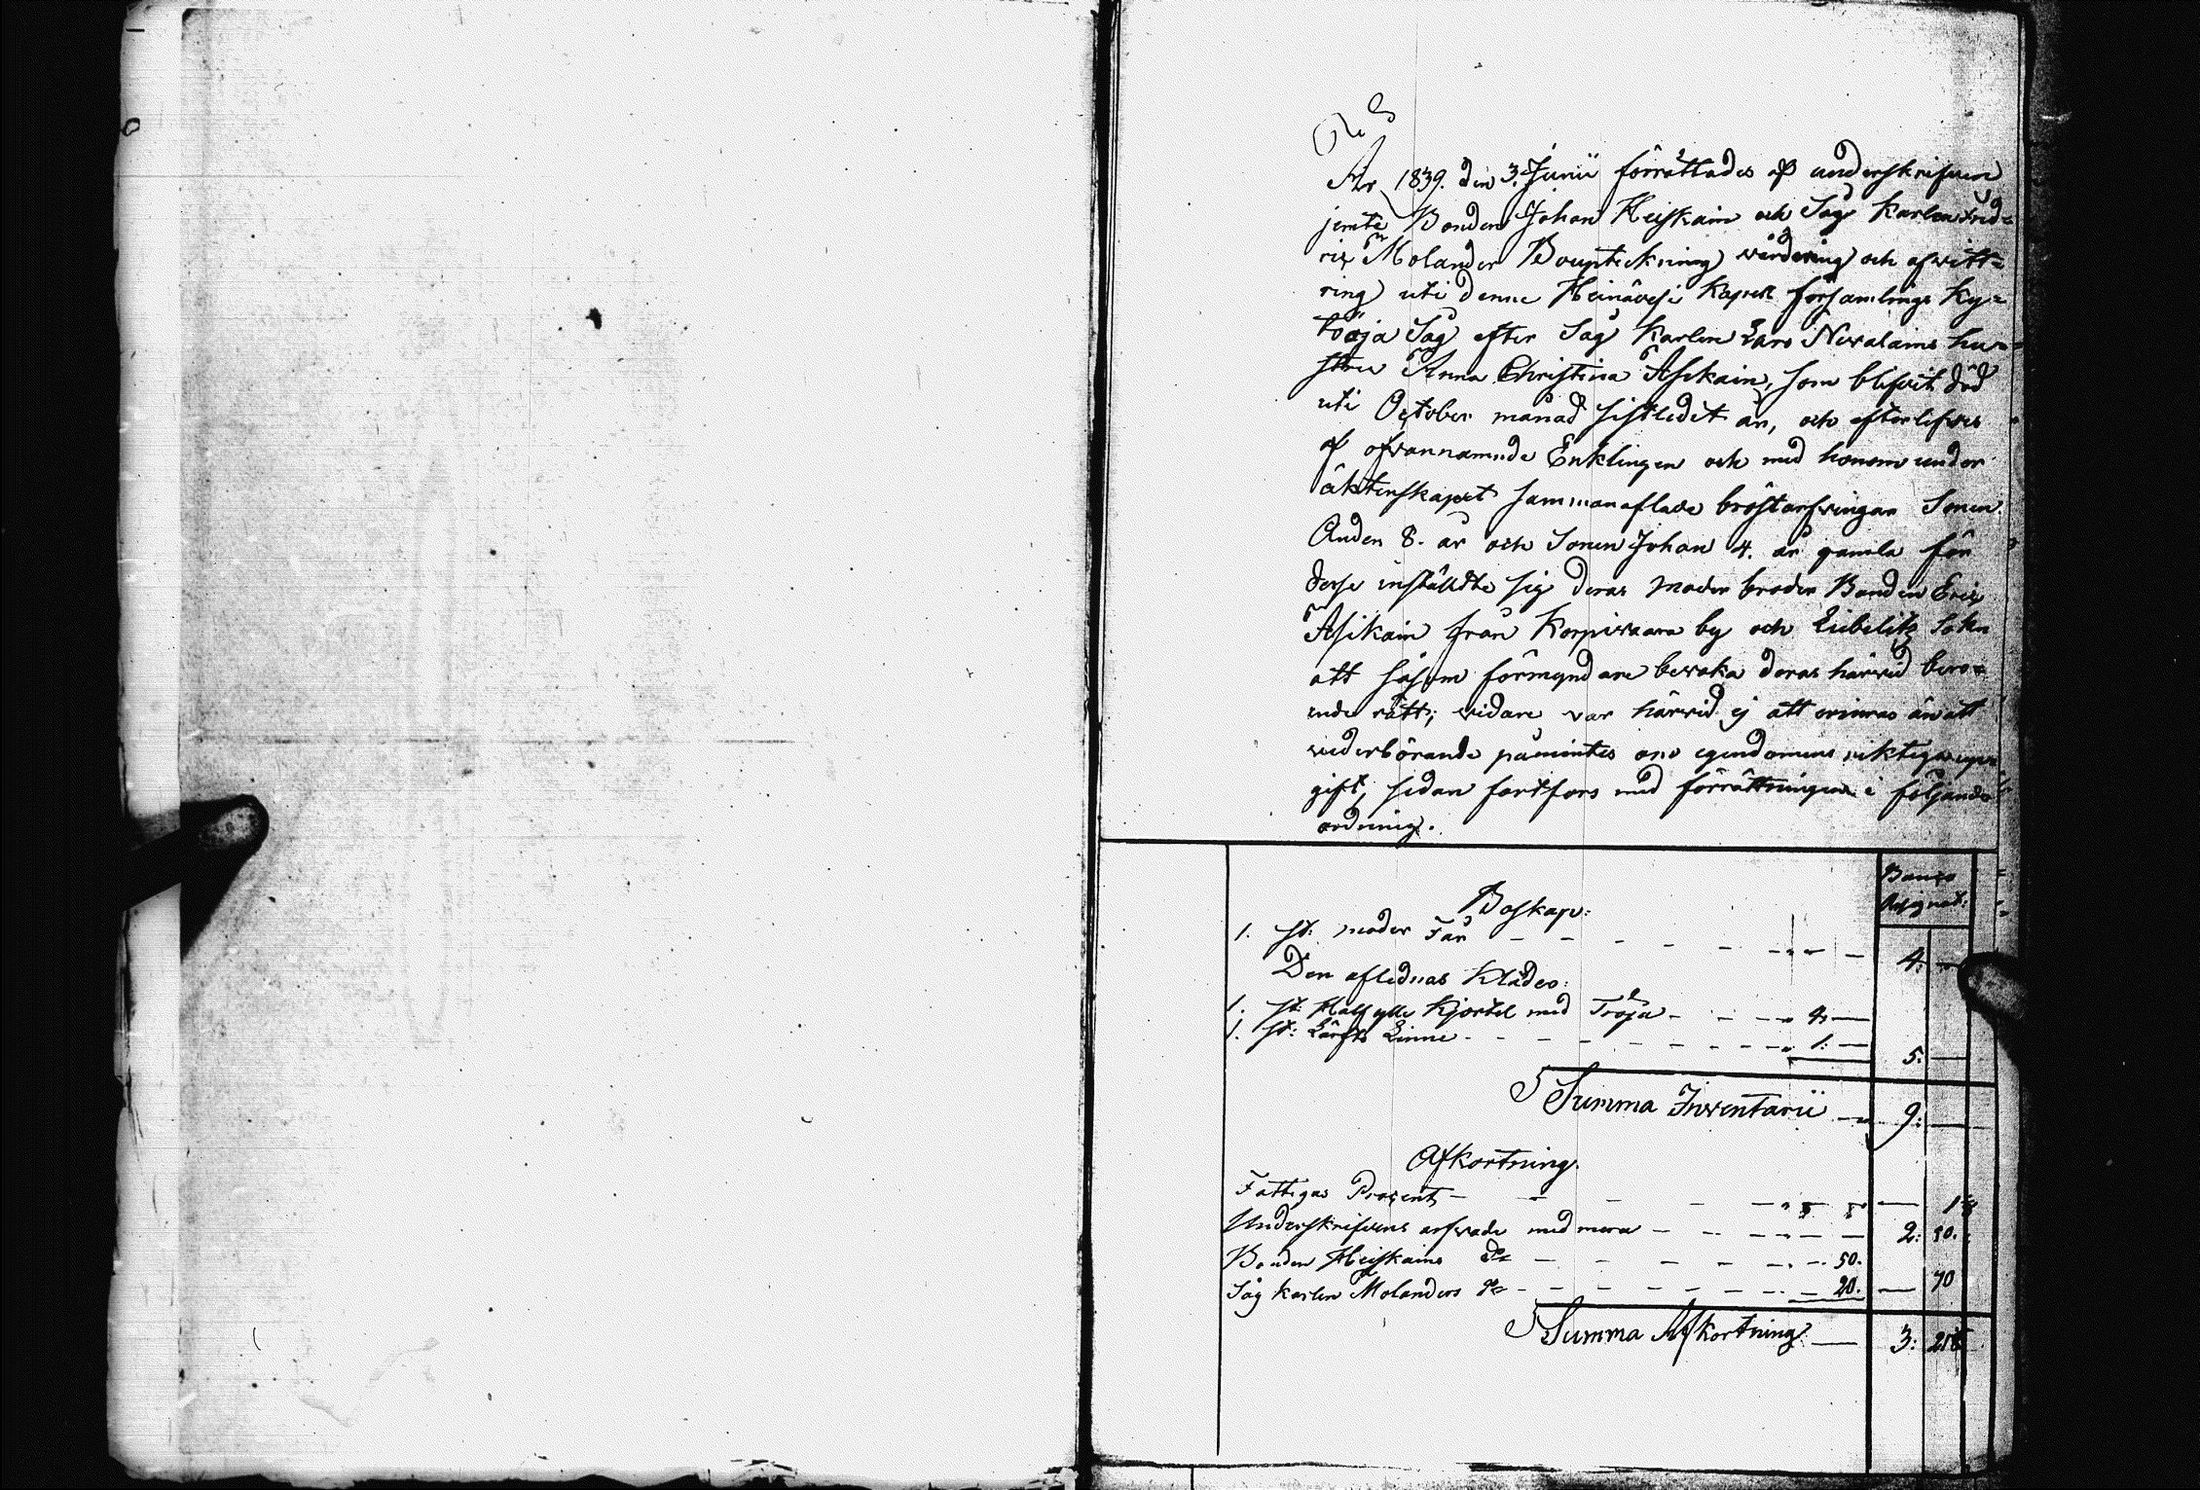 År 1839. den 3. Junii förrättades af underskrifven
jemte Bonden Johan Heiskain och Såg Karlen Fred=
ric Molander Bouptekning värdering och afvitt=
ring uti denne Heinävesi Kapell församlings Ky=
Såg efter Såg Karlen Lars Nevalains hu=
stru Anna Christina Asikain, som blifvit död
uti October månad sistledet år, och efterlefves
af ofvannämnde Enklingen och med honom under
äktenskapet sammanaflade bröstarfvingar Sonen
Anders 8. år och Sonen Johan 4. år gamla för
desse instälde sig deras moder broder Bonden Eric
Asikain från Korpivaara by och Libelitz Sokn
att såsom förmyndare bevaka deras härvid bero=
ende rätt; vidare var härvid ej att erinras än att
vederbörande påmintes om egendomens riktiga upp
gift, sedan fortfors med förrättningen i följande
ordning.
Banco
Assignat:
Boskap:
1. st: moder Får — 4: —
Den aflednas Kläder:
1. st: Halfylle Kjortel med Tröja — 4: —
1. st: Lärfts Linne — 1: — 5: —
Summa Inventarii — 9: —
Afkortning.
Fattigas Procent —
Underskrifvens arfvode med mera — 2: 50.
Bonden Heiskains do — 50.
Såg karlen Molanders do — 20. — 70
Summa Afkortning: — 3: